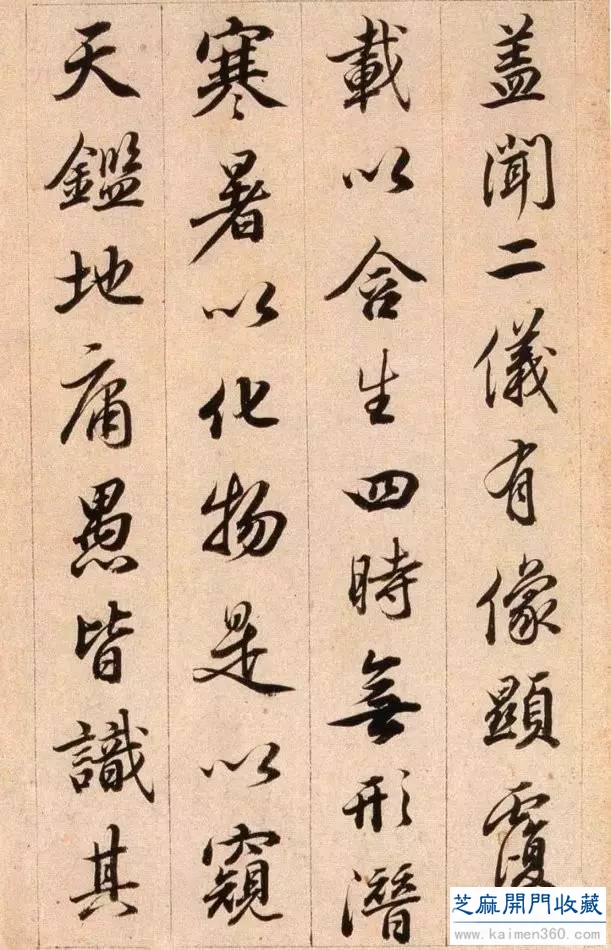 盖聞二儀有像顯覆
載以含生四時無形潛
寒暑以化物是以窺
天鑑地庸愚皆識其
芝麻開門收藏
www.kaimen360.com